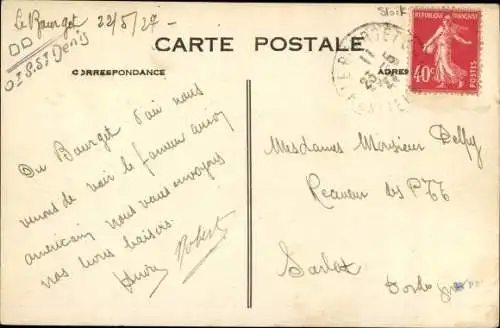 Le Bourget 22/5/27 -
Stock
CARTE POSTALE
CORRESPONDANCE
ADRES
REPUBLIQUE FRANÇAISE
40c
POSTES
Du Bourget d'où nous
venons de voir le fameux avion
américain nous vous envoyons
nos bons baisers.
Robert
Mesdames Monsieur Delfy
Receveur des PTT
Sarlat
Dordogne